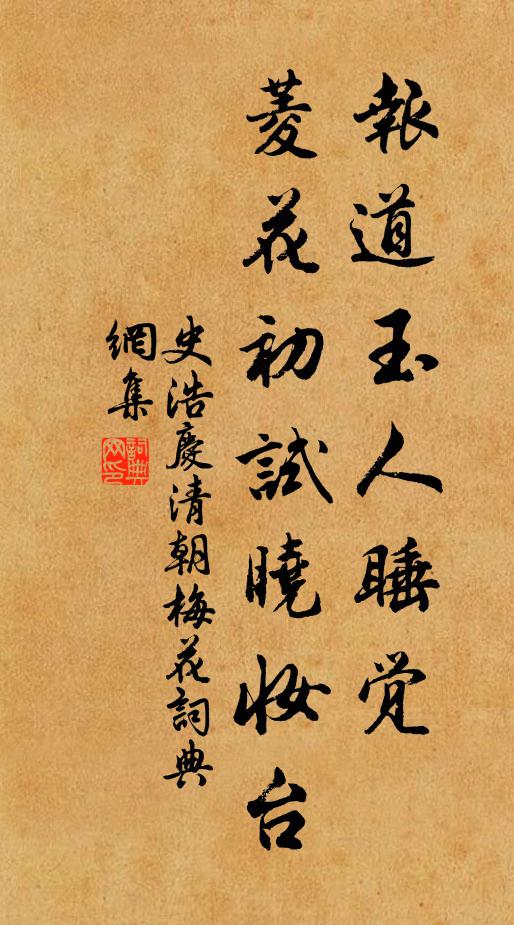 報道玉人睡覚
菱花初試曉妝台
史浩慶清朝梅花詞典
網集
詞典
網印